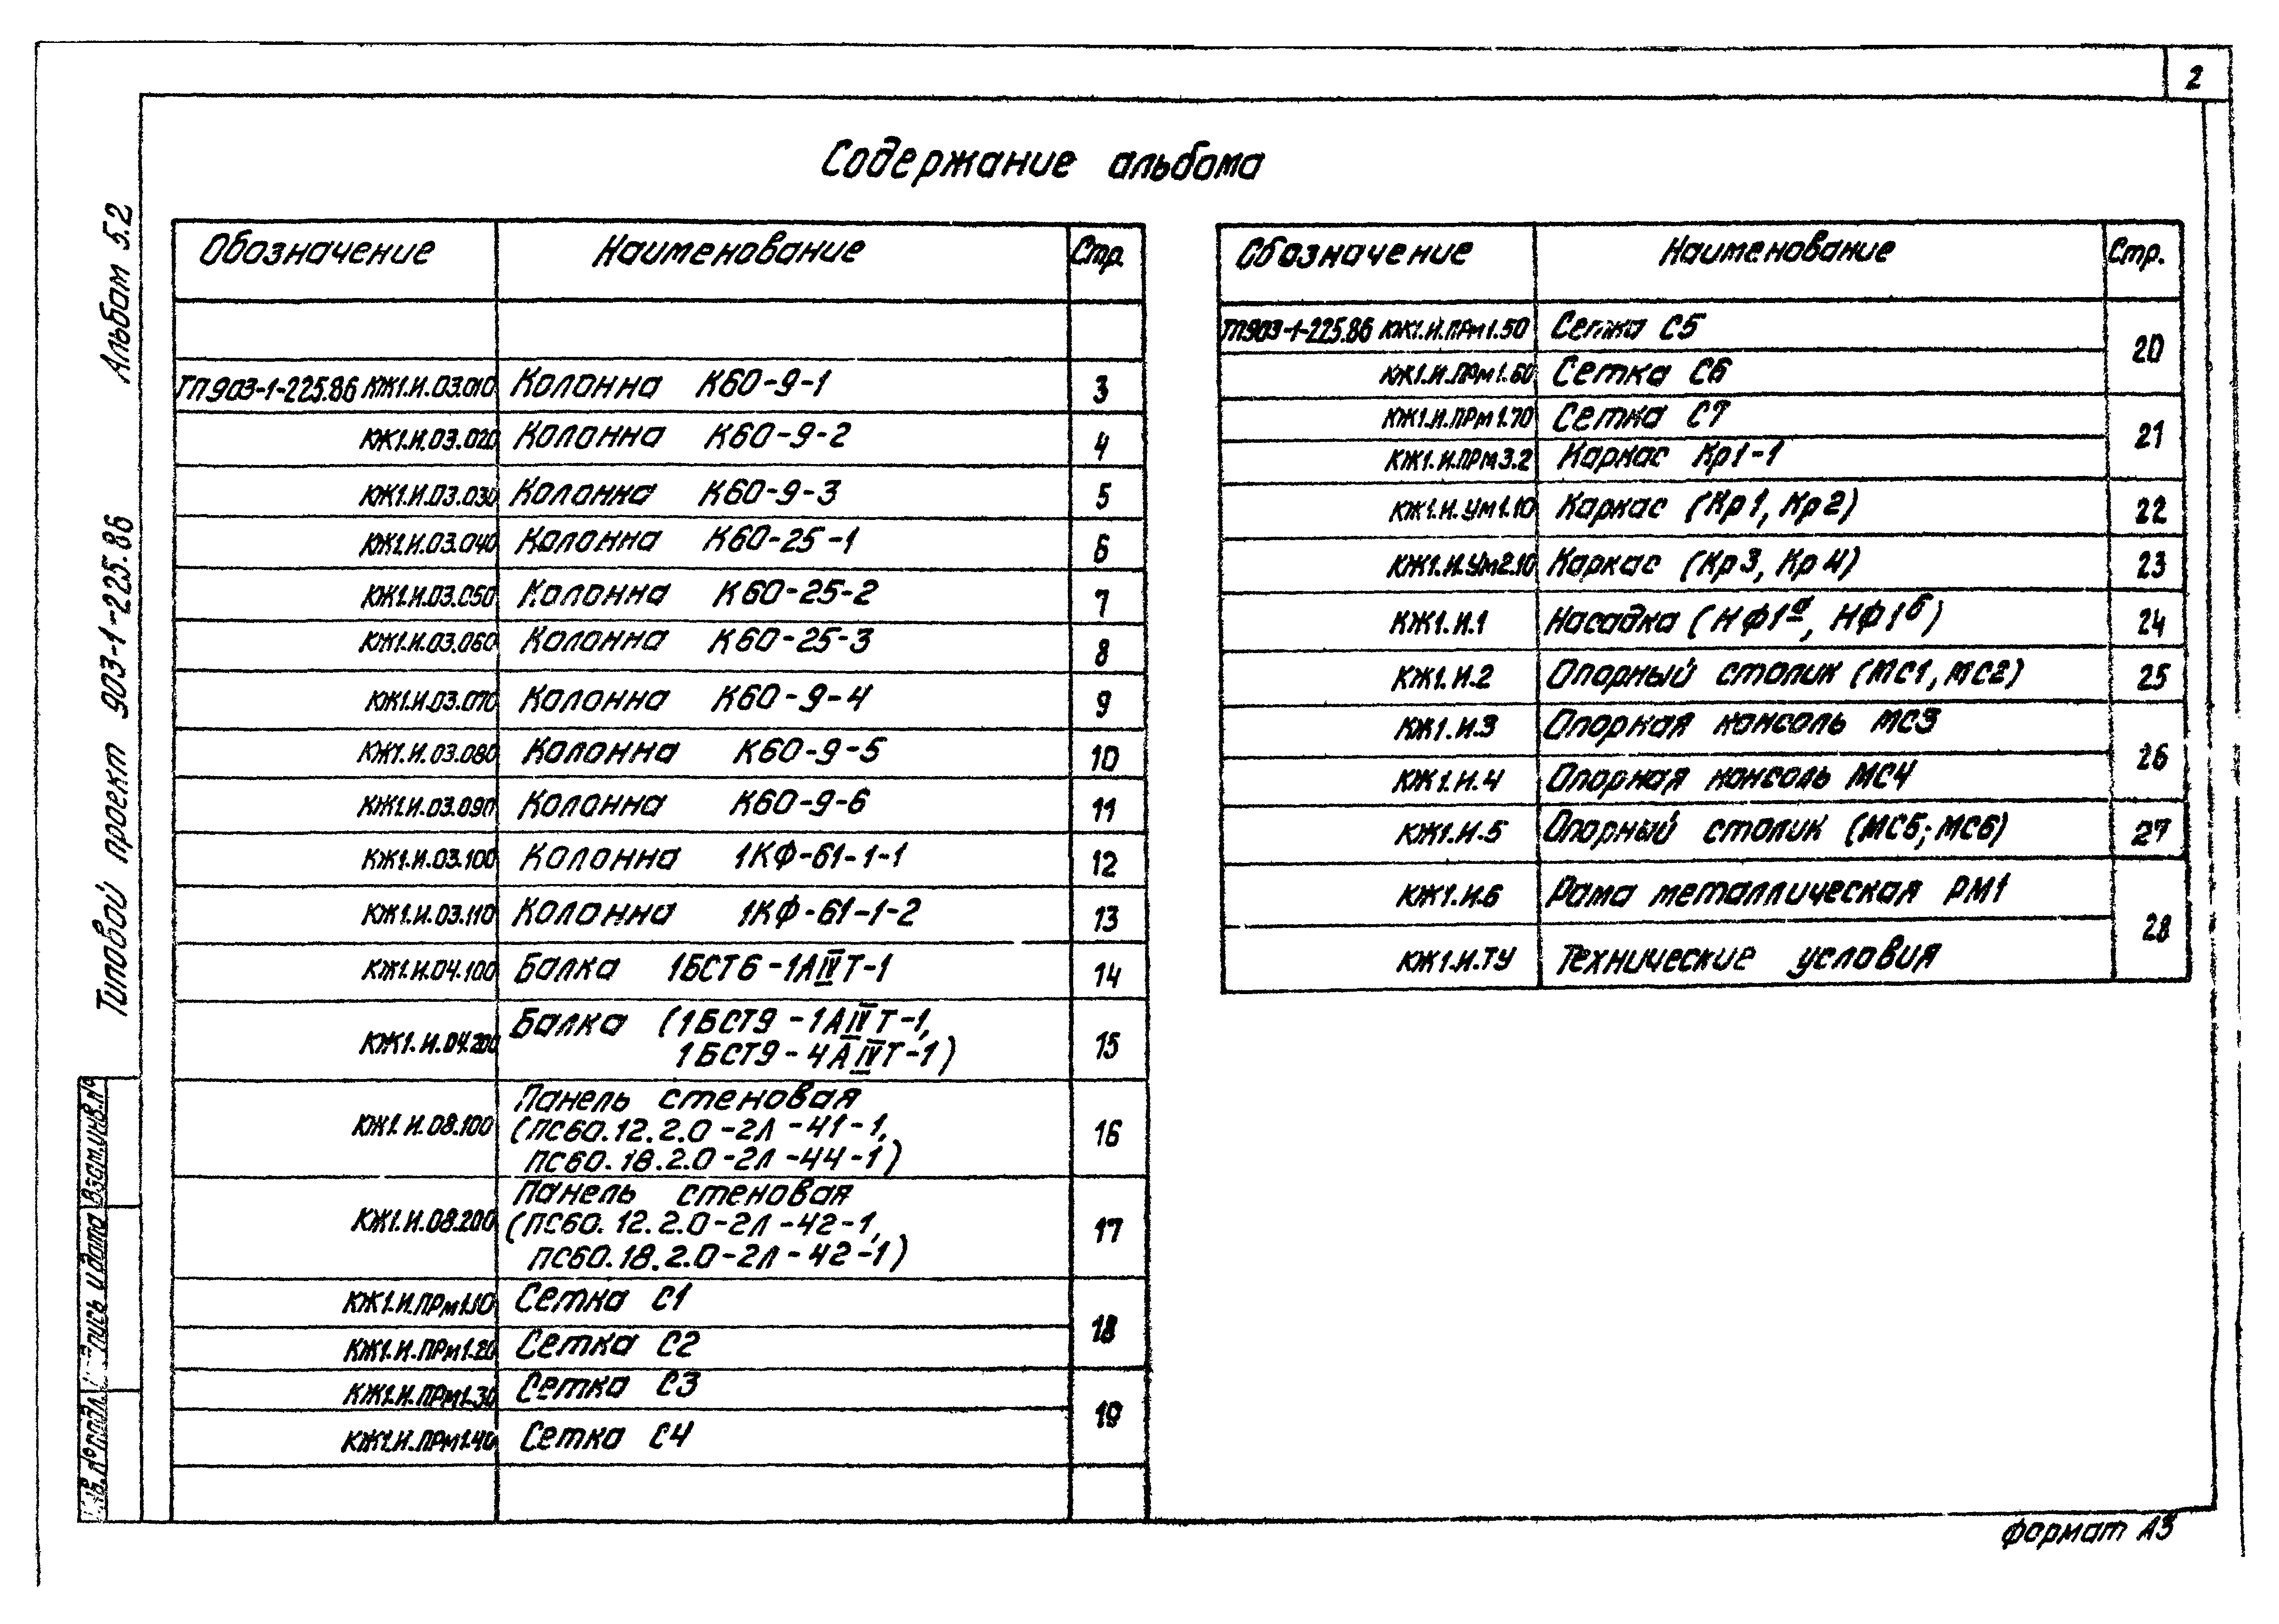 2
Содержание альбома
Альбом 5.2
Типовой проект 903-1-225.86
Обозначение Наименование Стр.
ТП903-1-225.86 КЖ1.И.03.010 Колонна К60-9-1 3
КЖ1.И.03.020 Колонна К60-9-2 4
КЖ1.И.03.030 Колонна К60-9-3 5
КЖ1.И.03.040 Колонна К60-25-1 6
КЖ1.И.03.050 Колонна К60-25-2 7
КЖ1.И.03.060 Колонна К60-25-3 8
КЖ1.И.03.070 Колонна К60-9-4 9
КЖ1.И.03.080 Колонна К60-9-5 10
КЖ1.И.03.090 Колонна К60-9-6 11
КЖ1.И.03.100 Колонна 1КФ-61-1-1 12
КЖ1.И.03.110 Колонна 1КФ-61-1-2 13
КЖ1.И.04.100 Балка 1БСТ6-1АIVТ-1 14
КЖ1.И.04.200 Балка (1БСТ9-1АIVТ-1, 15
1БСТ9-4АIVТ-1)
КЖ1.И.08.100 Панель стеновая 16
(ПС60.12.2.0-2Л-41-1,
ПС60.18.2.0-2Л-44-1)
КЖ1.И.08.200 Панель стеновая 17
(ПС60.12.2.0-2Л-42-1,
ПС60.18.2.0-2Л-42-1)
КЖ1.И.ПРм1.10 Сетка С1 18
КЖ1.И.ПРм1.20 Сетка С2
КЖ1.И.ПРм1.30 Сетка С3 19
КЖ1.И.ПРм1.40 Сетка С4
Обозначение Наименование Стр.
ТП903-1-225.86 КЖ1.И.ПРм1.50 Сетка С5 20
КЖ1.И.ПРм1.60 Сетка С6
КЖ1.И.ПРм1.70 Сетка С7 21
КЖ1.И.ПРм3.2 Каркас Кр1-1
КЖ1.И.Ум1.10 Каркас (Кр1, Кр2) 22
КЖ1.И.Ум2.10 Каркас (Кр3, Кр4) 23
КЖ1.И.1 Насадка (НФ1а, НФ1б) 24
КЖ1.И.2 Опорный столик (МС1, МС2) 25
КЖ1.И.3 Опорная консоль МС3 26
КЖ1.И.4 Опорная консоль МС4
КЖ1.И.5 Опорный столик (МС5; МС6) 27
КЖ1.И.6 Рама металлическая РМ1 28
КЖ1.И.ТУ Технические условия
Взам.инв.№
пись и дата
в.№ подл.
формат А3